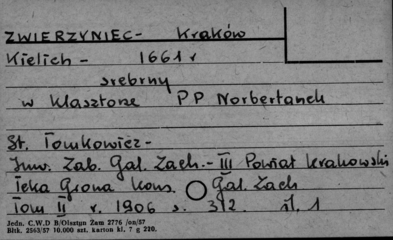 ZWIERZYNIEC- Kraków
Kielich - 1661 r
srebrny
w Klasztorze PP Norbertanek
St. Tomkowicz -
Inw. Zab. Gal. Zach. - III Powiat krakowski
Teka Grona Kons. Gal. Zach
Tom II r. 1906 s. 312 il. 1
Jedn. C.W.D B/Olsztyn Zam 2776 /on/57
Bltk. 2563/57 10.000 szt. karton kl. 7 g 220.